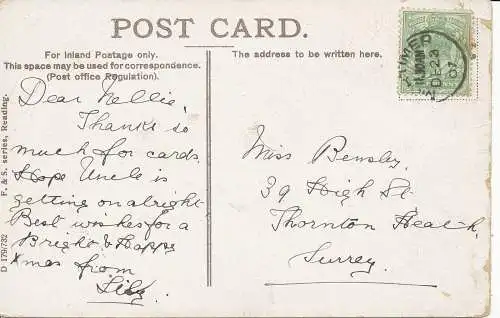 POST CARD.
For Inland Postage only.
This space may be used for correspondence.
(Post office Regulation).
The address to be written here.
Dear Nellie,
Thanks so
much for cards
Hope Uncle is
getting on alright
Best wishes for a
Bright & Happy
Xmas from
Lily.
Miss Bensley
39 High St
Thornton Heath,
Surrey.
F. & S. series, Reading.
D 179/732
DE 23
07